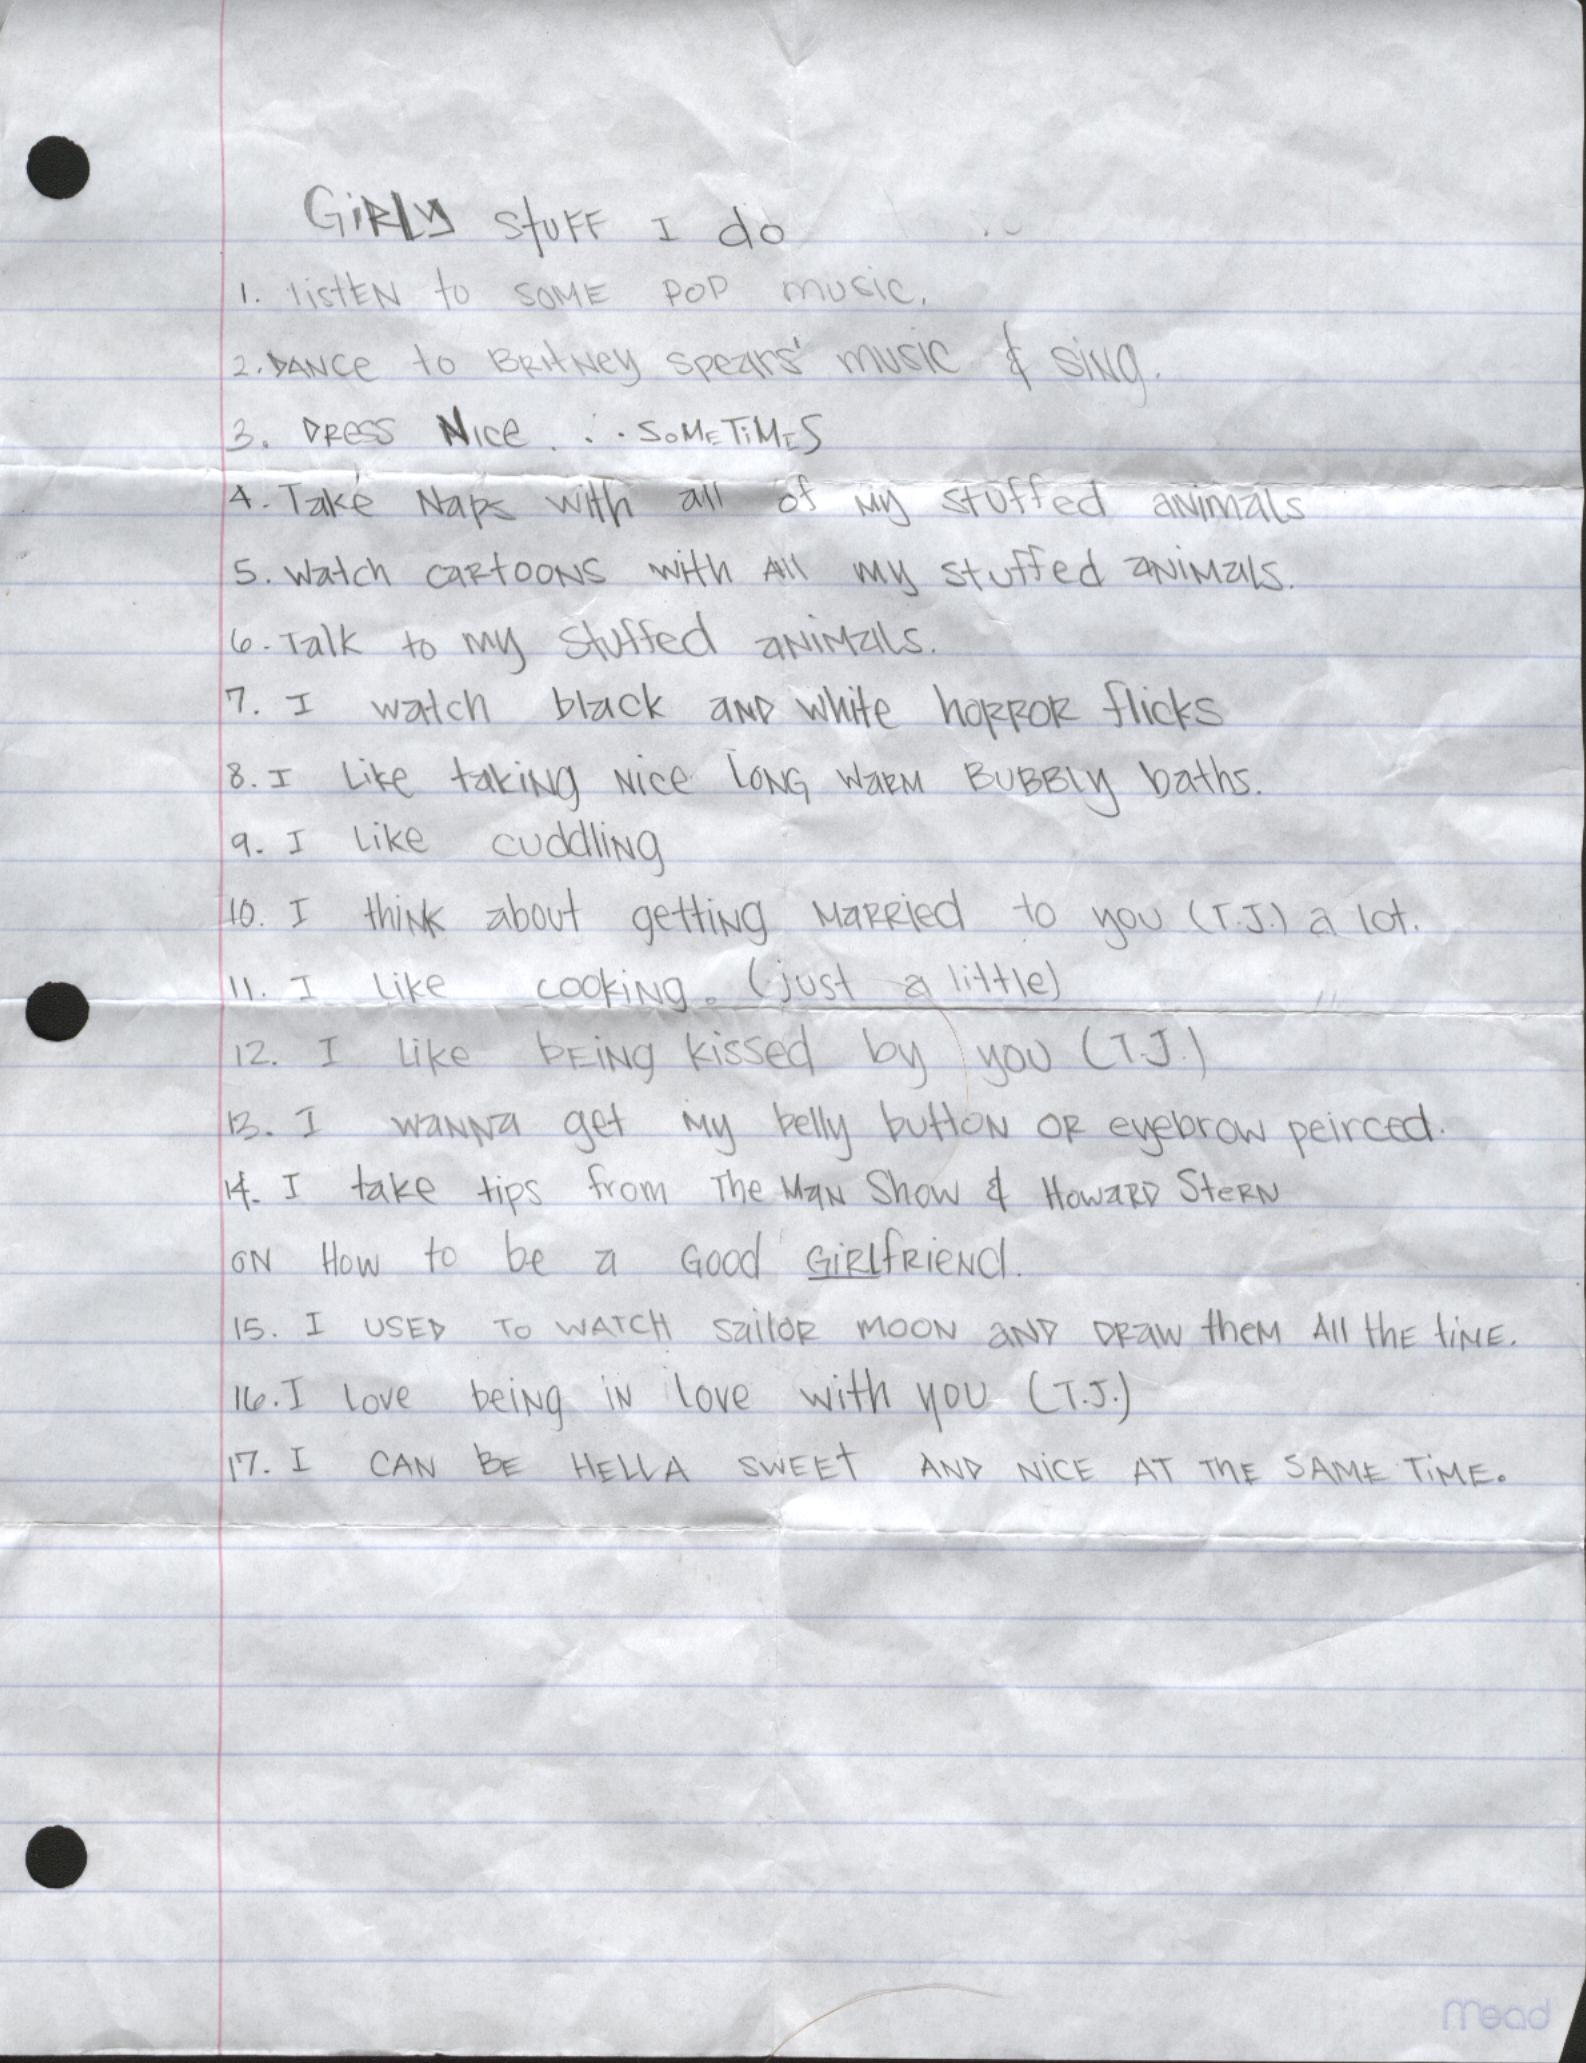 GiRLy stuFF I do
1. listEN to SOME POP music.
2. DANCe to BRitNey spears' music & sing.
3. DRess Nice... SoMETiMES
4. Take Naps with all of my stuffed aNiMals
5. Watch caRtOONS with All my stuffed aNiMals.
6. Talk to my stuffed aNiMals.
7. I watch black aND white hoRROR flicks
8. I Like taking Nice LONG WaRM BUBBLy baths.
9. I like cuddling
10. I think about getting MaRRied to you (T.J.) a lot.
11. I Like cooking. (just a little)
12. I like bEiNg kissed by you (T.J.)
13. I waNNa get My belly buttoN OR eyebrow peirced.
14. I take tips from The MaN Show & HowaRD SteRN
oN How to be a Good GiRLfRiENd.
15. I USED To WATCH sailoR MOON aND DRaw theM All thE tiME.
16. I love being iN love with you (T.J.)
17. I CAN BE HELLA SWEEt AND NiCE AT THE SAME TiME.
Mead